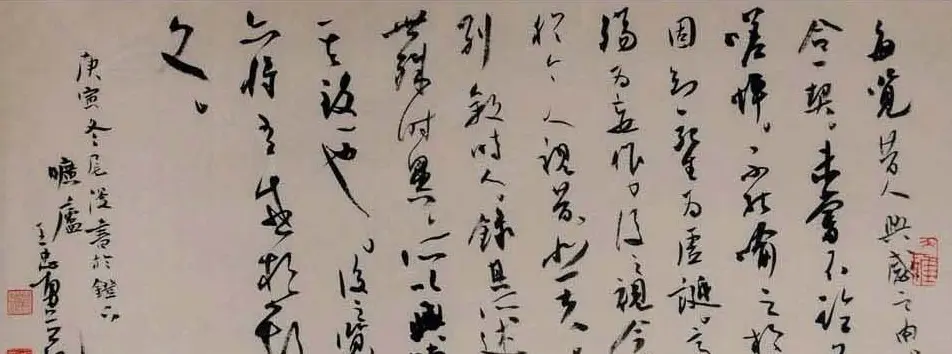 每覽昔人興感之由
合一契。未嘗不臨
嗟悼。不能喻之於
固知一死生為虛誕。
殤為妄作。後之視今
猶今之視昔。悲夫。
列敘時人。錄其所述
世殊時異。所以興
其致一也。後之覽
亦將有感於斯
文。
庚寅冬尾漫書於鐙下
曠廬
王忠勇